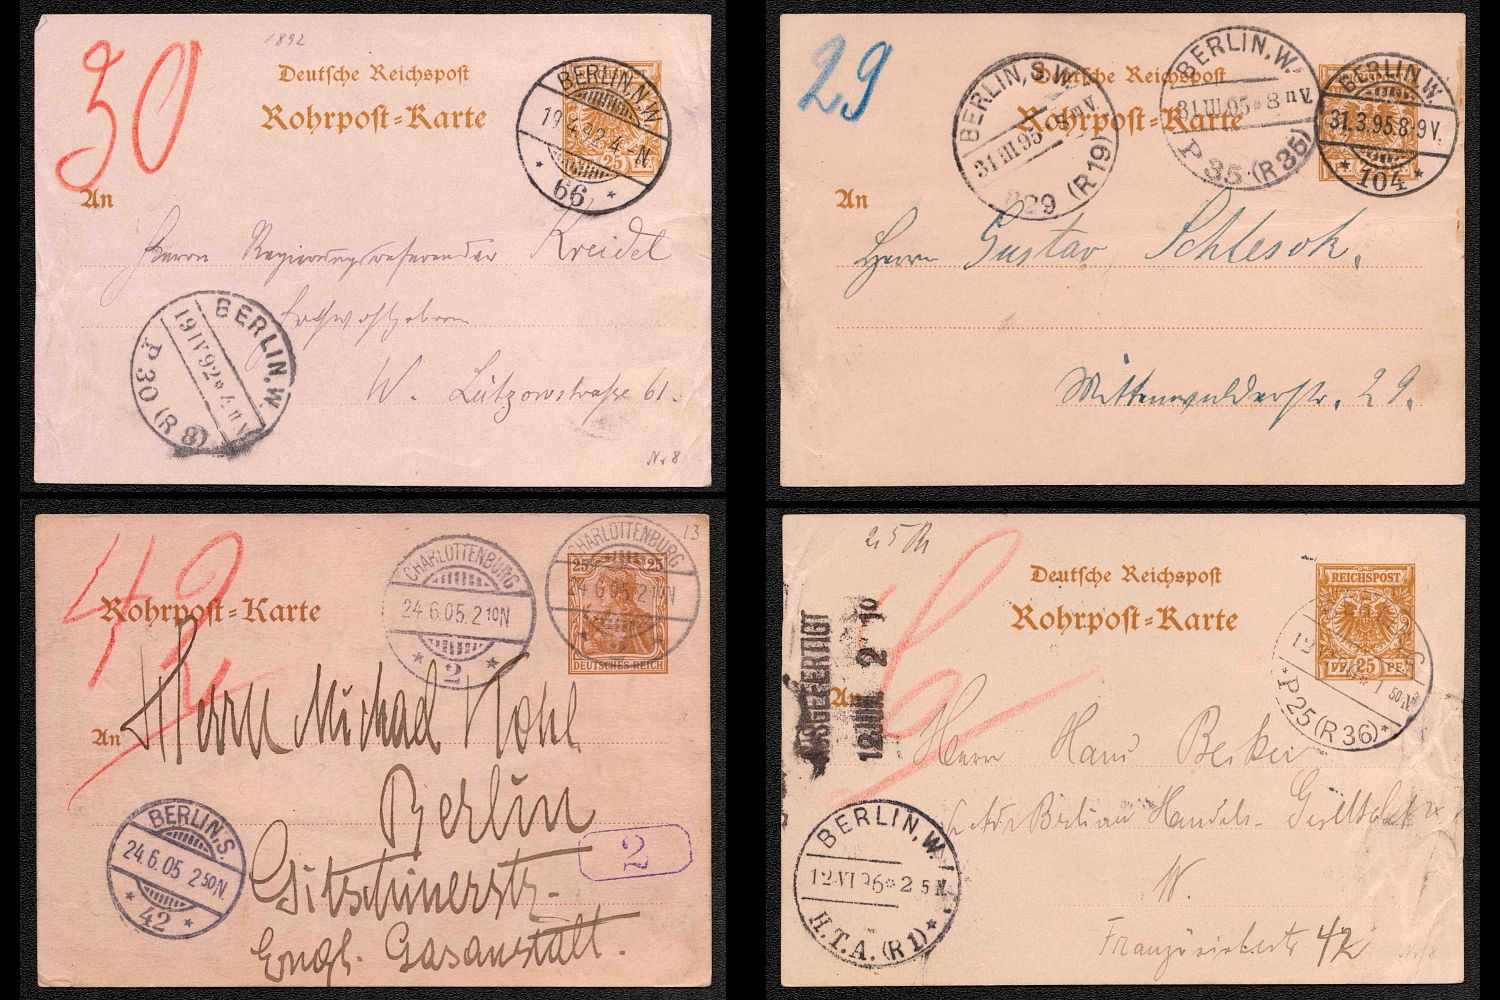 1892
30
Deutsche Reichspost
Rohrpost=Karte
BERLIN, N.W.
19.4.92.4-N.
* 66 *
An
Herrn Regierungsreferendar Kreidel
Hochwohlgeboren
W. Lützowstraße 61.
BERLIN, W.
19 IV 92 * 4 N
P 30 (R 8)
Nr 8
29
Deutsche Reichspost
Rohrpost=Karte
BERLIN, S.W.
31 III 95
P 29 (R 19)
BERLIN, W.
31 III 95 * 8 V.
P 35 (R 35)
BERLIN W.
31.3.95.8-9V.
* 104 *
An
Herrn Gustav Schlesok.
Mittenwalderstr. 29.
42
Rohrpost=Karte
CHARLOTTENBURG
24.6.05.2 10N
* 2 *
CHARLOTTENBURG
24.6.05.2 10N
13
25 25
DEUTSCHES REICH
An
Herrn Michael Kohl
Berlin
Gitschinerstr.
Engl. Gasanstalt.
BERLIN, S.
24.6.05 2 50N
* 42 *
2
25 Pf
Deutsche Reichspost
Rohrpost=Karte
REICHSPOST
25 PF
12 VI 96 * 1 50N
* P 25 (R 36) *
AUSGEFERTIGT
12 JUN. 2 10
An
Herrn Hans Becker
Berliner Handels-Gesellschaft
W.
Französischestr 42
BERLIN, W.
12 VI 96 * 2 5 N.
H.T.A. (R 1) *